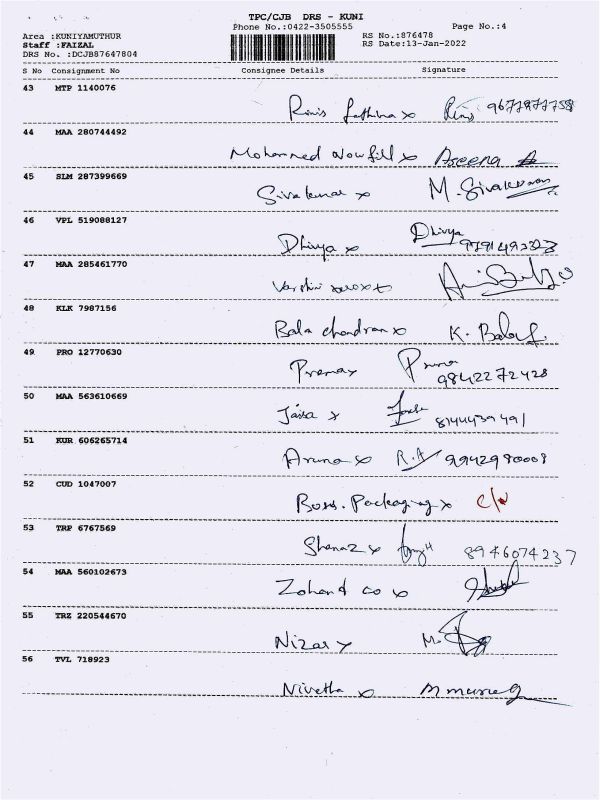 TPC/CJB DRS - KUNI
Phone No.:0422-3505555 Page No.:4
Area :KUNIYAMUTHUR RS No.:876478
Staff :FAIZAL RS Date:13-Jan-2022
DRS No. :DCJB87647804
S No Consignment No Consignee Details Signature
43 MTP 1140076
44 MAA 280744492
Mohammed Nowfil x Aseena
45 SLM 287399669
Sivakumar x M. Sivakumar
46 VPL 519088127
Dhivya x Dhivya
47 MAA 285461770
Varshini
48 KLK 7987156
Bala chandran x K. Bala
49 PRO 12770630
Prema x Prema
9842272428
50 MAA 563610669
8144439491
51 KUR 606265714
Aruna x R.A 9942980008
52 CUD 1047007
Boss. Packaging x c/w
53 TRP 6767569
Shenaz x 8946074237
54 MAA 560102673
Zohand co x
55 TRZ 220544670
Nizar x
56 TVL 718923
Nivetha x